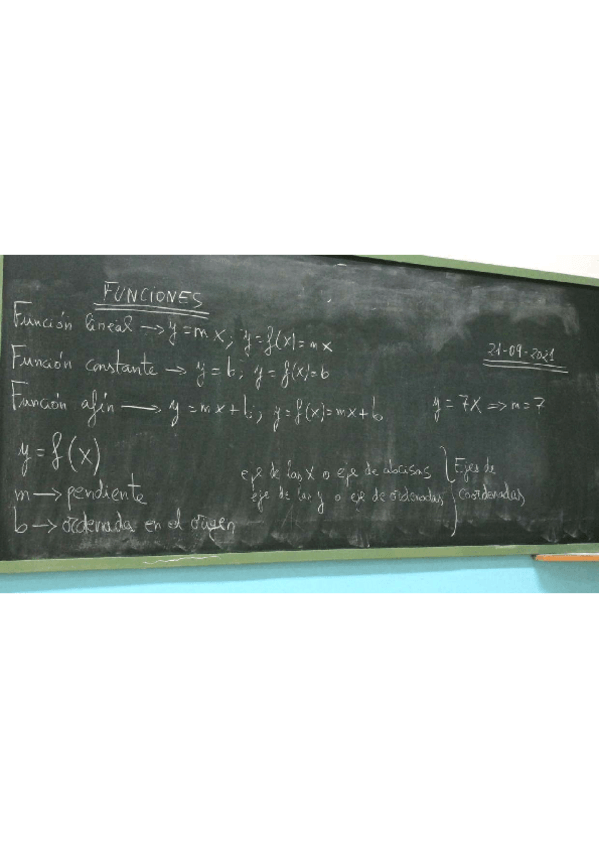 FUNCIONES
21-09-2021
Función lineal → y = mx; y = f(x) = mx
Función constante → y = b; y = f(x) = b
Función afín → y = mx + b; y = f(x) = mx + b
y = 7x ⇒ m = 7
y = f(x)
m → pendiente
b → ordenada en el origen
eje de las x o eje de abcisas
eje de las y o eje de ordenadas
} Ejes de
coordenadas